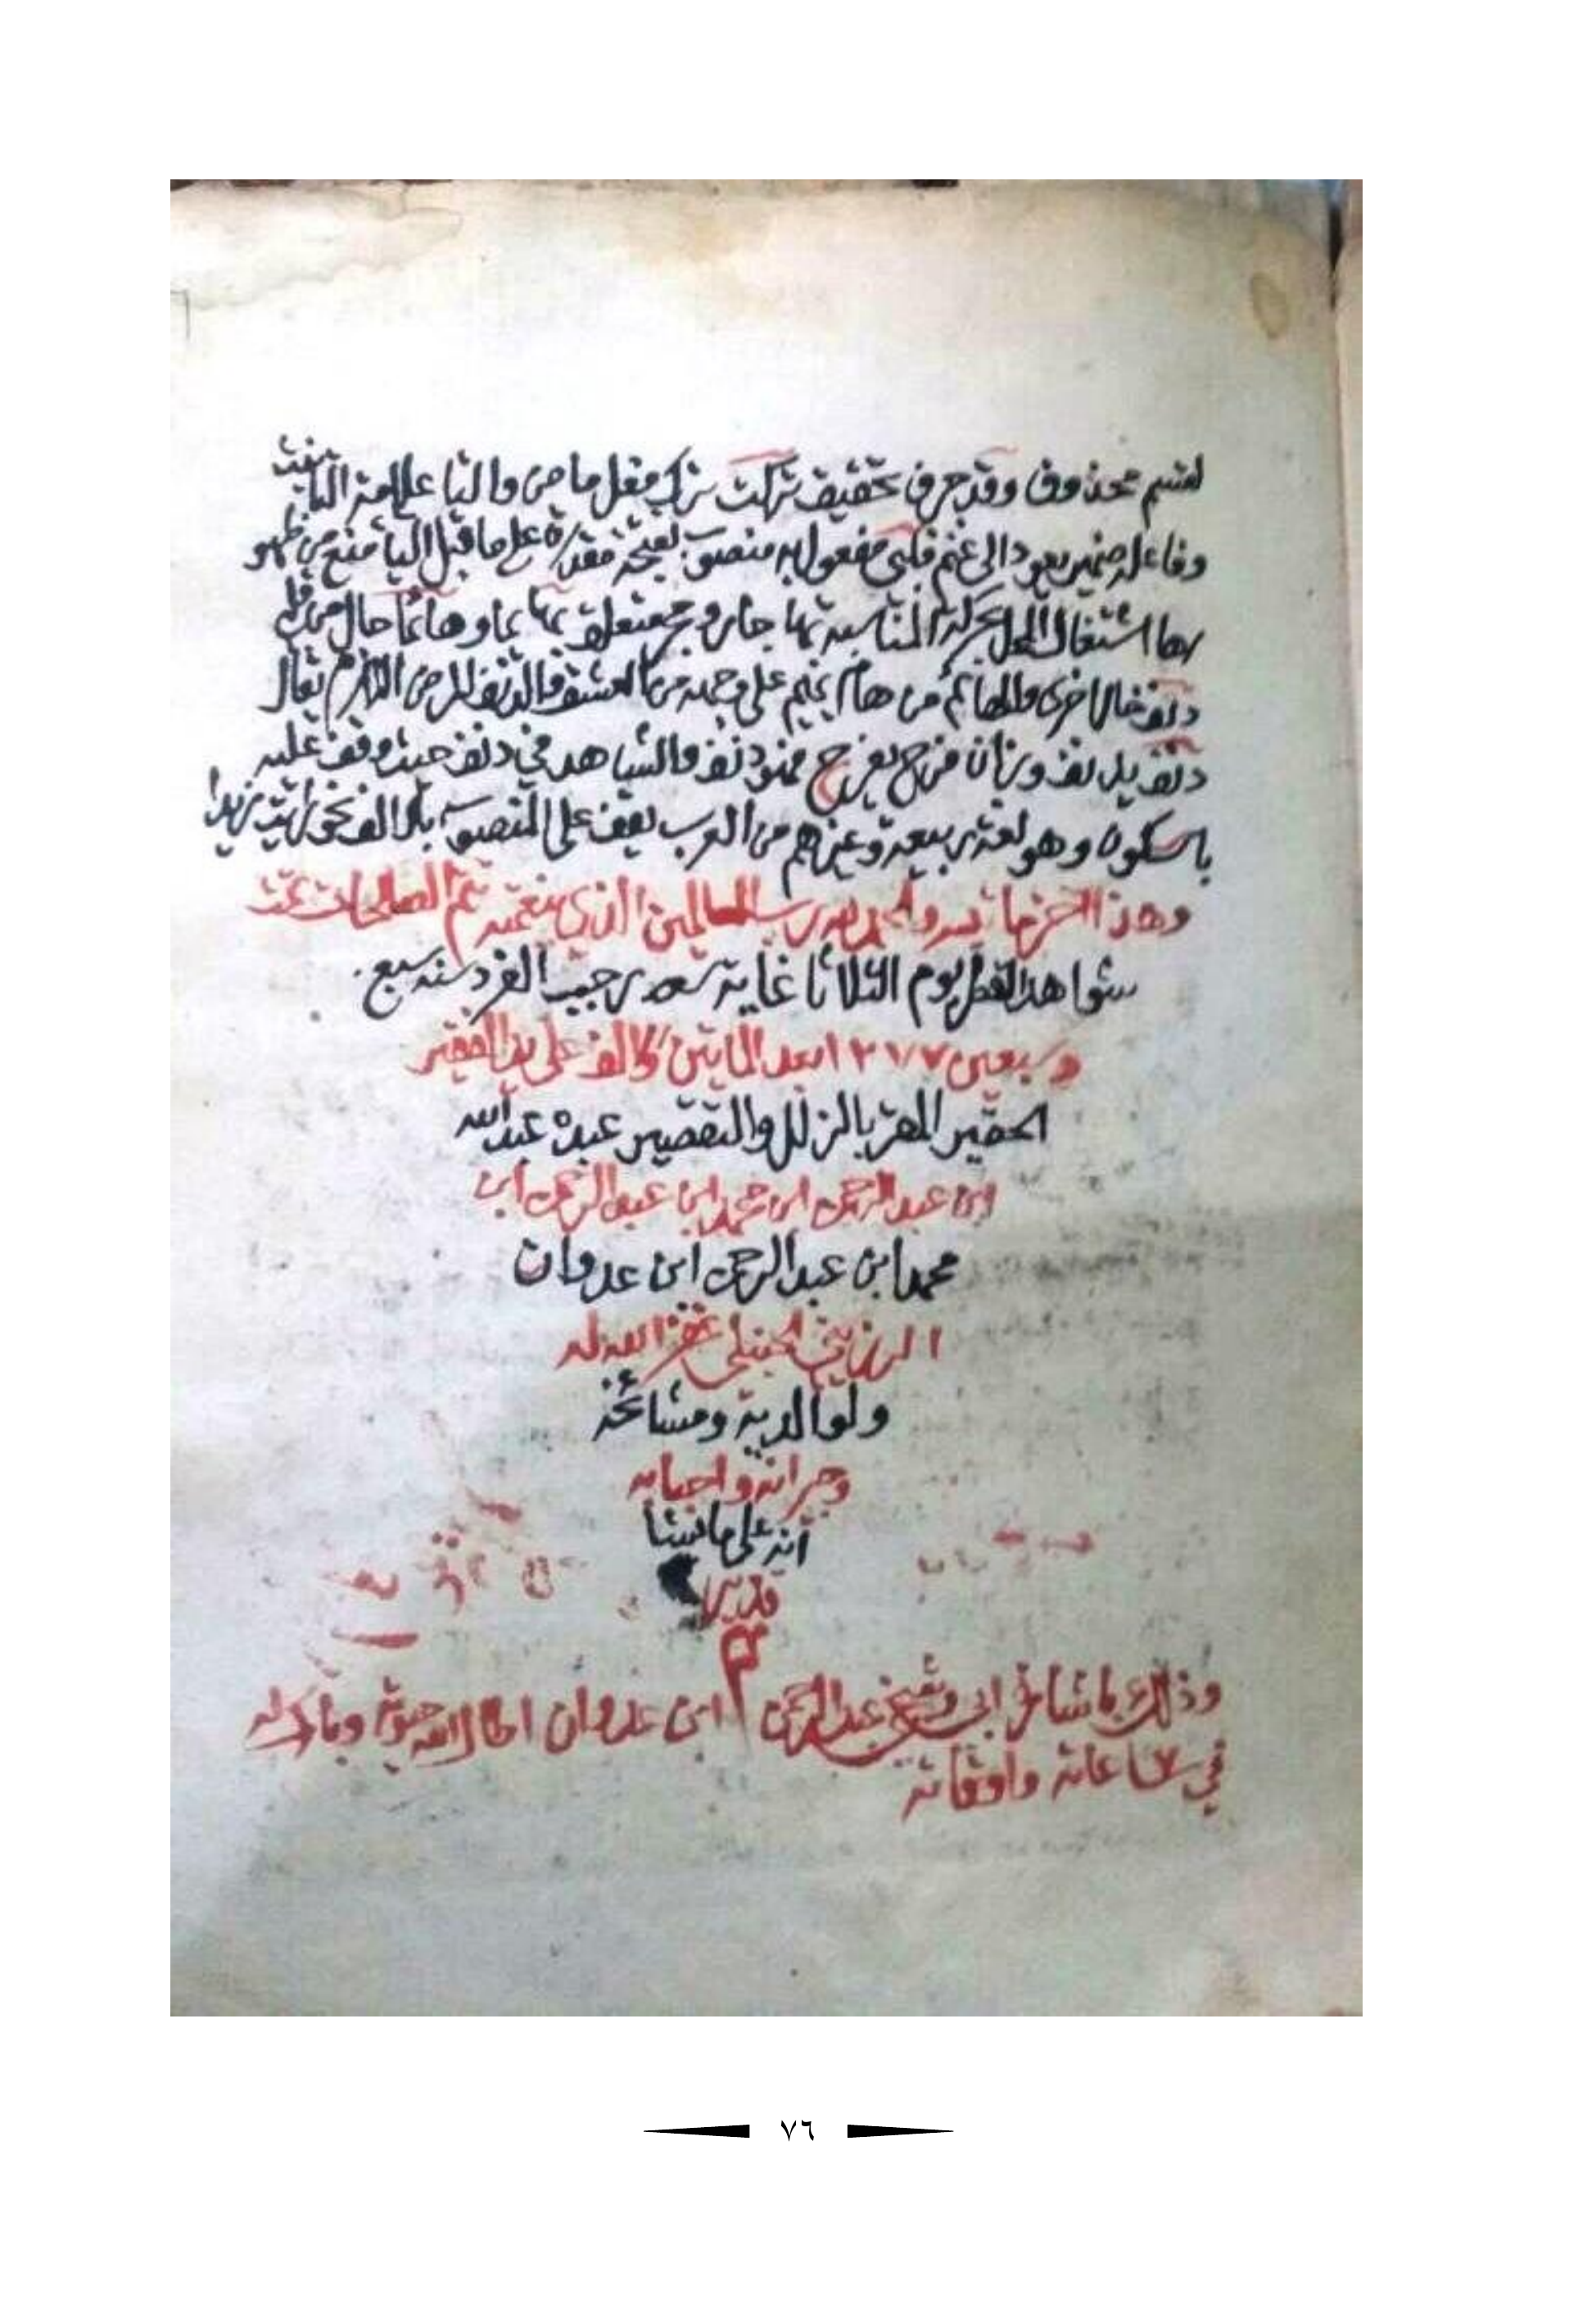 لقسم محذوف وقد حرف تحقيق تركت ترك فعل ماضي والتا علامة التانيث
وفاعله ضمير يعود الى غنم قلبي مفعول به منصوب بفتحة مقدرة على ما قبل اليا منع من ظهو
رها اشتغال المحل بحركة المناسبة بها جار ومجـ متعلق بهائما وهائما حال من قلبي
دنف حال اخرى والهائم من هام يهيم على وجهه من العشق والدنف المرض اللازم يقال
دنف يدنف وزان فرح يفرح فهو دنف والشاهد في دنف حيث وقف عليه
باسكون وهو لغة ربيعة وغيرهم من العرب يقف على المنصوب بالالف نحو رايت زيدا
وهذا اخر ما تيسر والحمد لله رب العالمين الذي بنعمته تتم الصالحات تمت
شواهد القطر يوم الثلاثا غاية شهر رجب الفرد سنة سبع
وسبعين ١٢٧٧ بعد المايتين والالف على يد الفقير
الحقير المقر بالزلل والتقصير عبده عبد الله
ابن عبد الرحمن ابن محمد ابن عبد الرحمن ابن
محمد ابن عبد الرحمن ابن عدوان
الرزيني الحنبلي غفر الله له
ولوالدية ومشائخه
وجيرانه واحبابه
انه على ما يشا
قدير
تم
وذلك باشارة ابي وشيخي عبد الرحمن ابن عدوان اطال الله حيوته وبارك له
في ساعاته واوقاته
٧٦